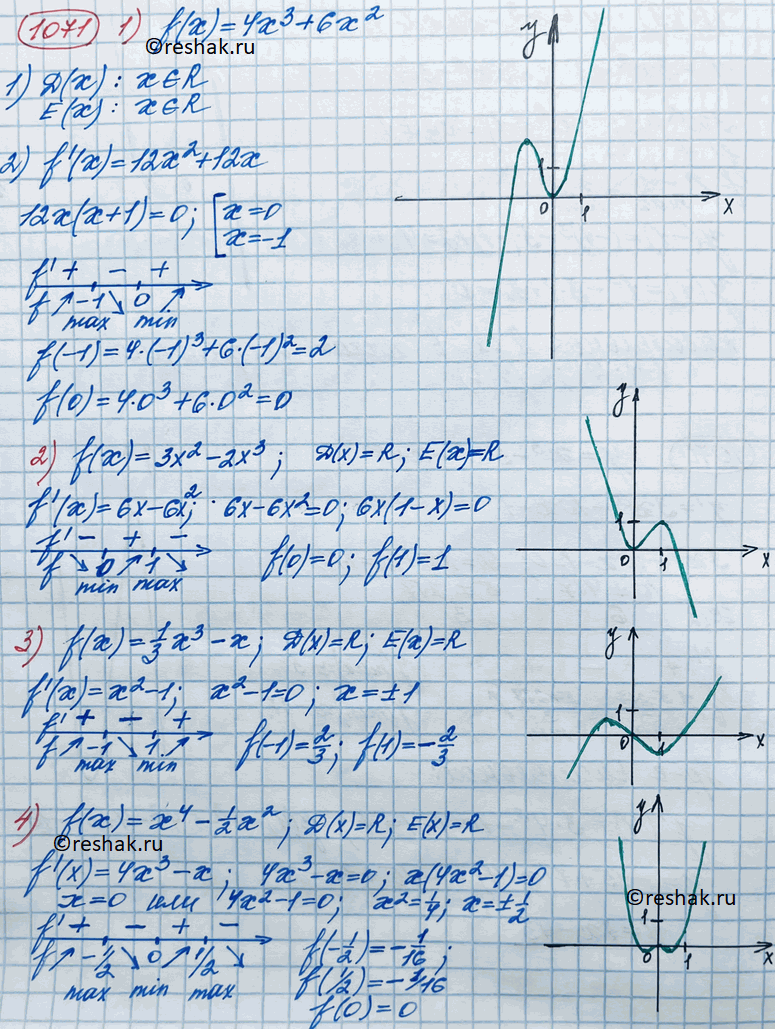 1071 1) f(x)=4x³+6x²
©reshak.ru
1) D(x): x∈R
E(x): x∈R
2) f'(x)=12x²+12x
12x(x+1)=0; [x=0
x=-1
f' + - +
f ↗ -1 ↘ 0 ↗
max min
f(-1)=4·(-1)³+6·(-1)²=2
f(0)=4·0³+6·0²=0
y
1
0 1 x
2) f(x)=3x²-2x³; D(x)=R; E(x)=R
f'(x)=6x-6x²; 6x-6x²=0; 6x(1-x)=0
f' - + -
f ↘ 0 ↗ 1 ↘
min max
f(0)=0; f(1)=1
y
1
0 1 x
3) f(x)=⅓x³-x; D(x)=R; E(x)=R
f'(x)=x²-1; x²-1=0; x=±1
f' + - +
f ↗ -1 ↘ 1 ↗
max min
f(-1)=2/3; f(1)=-2/3
y
1
0 1 x
4) f(x)=x⁴-½x²; D(x)=R; E(x)=R
©reshak.ru
f'(x)=4x³-x; 4x³-x=0; x(4x²-1)=0
x=0 или 4x²-1=0; x²=¼; x=±½
f' + - + -
f ↗ -½ ↘ 0 ↗ 1/2 ↘
max min max
f(-½)=-1/16;
f(1/2)=-1/16
f(0)=0
y
©reshak.ru
1
0 1 x